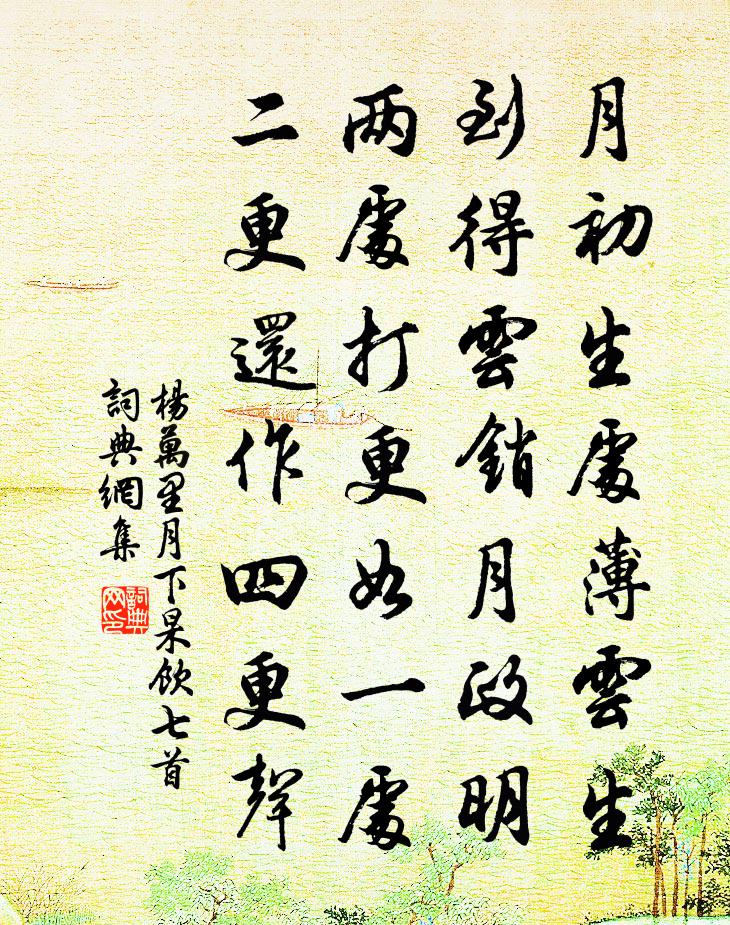 月初生處薄雲生
到得雲銷月政明
两處打更如一處
二更還作四更聲
楊萬里月下杲飲七首
詞典網集
詞典网印